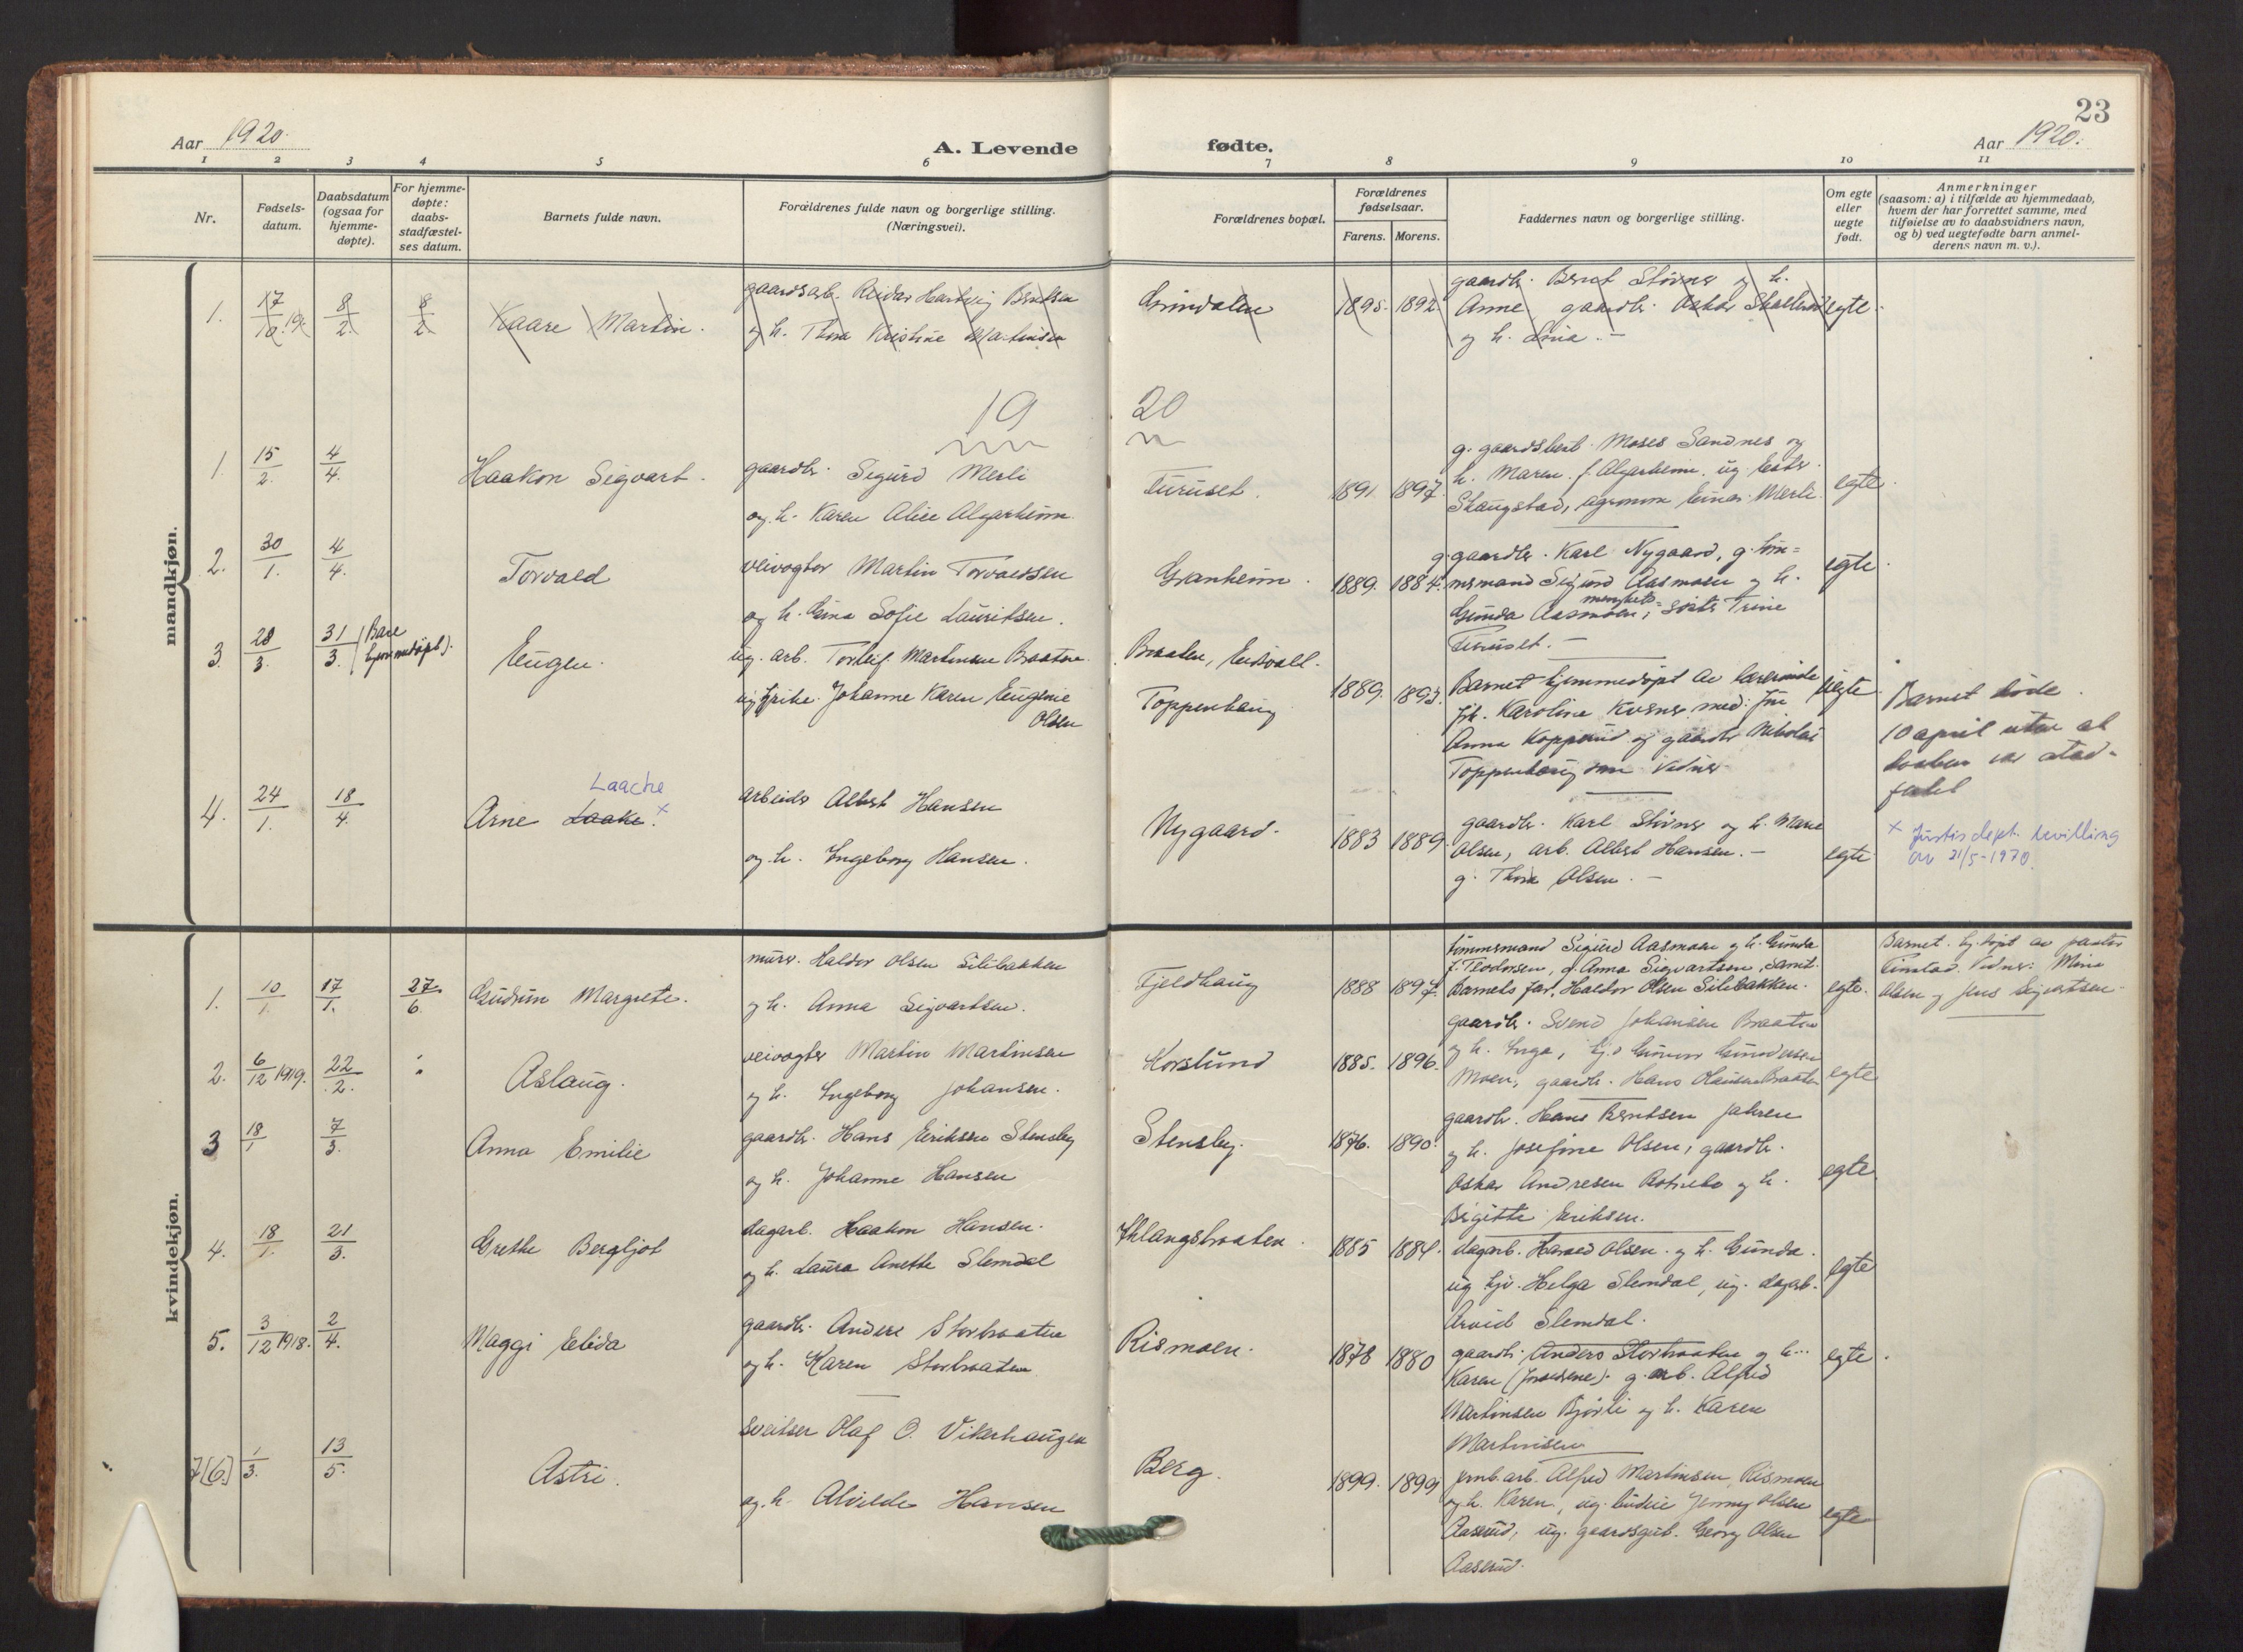 23
Aar 1920.
A. Levende fødte.
Aar 1920.
1 2 3 4 5 6 7 8 9 10 11
Nr.
Fødsels-
datum.
Daabsdatum
(ogsaa for
hjemme-
døpte).
For hjemme-
døpte:
daabs-
stadfæstel-
ses datum.
Barnets fulde navn.
Forældrenes fulde navn og borgerlige stilling.
(Næringsvei).
Forældrenes bopæl.
Forældrenes
fødselsaar.
Farens. Morens.
Faddernes navn og borgerlige stilling.
Om egte
eller
uegte
født.
Anmerkninger
(saasom: a) i tilfælde av hjemmedaab,
hvem der har forrettet samme, med
tilføielse av to daabsvidners navn,
og b) ved uegtefødte barn anmel-
derens navn m. v.).
mandkjøn.
1. 17/10 19. 8/2. 8/2
Kaare Martin.
gaardsarb. Reidar Hartvig Berntsen
og h. Thora Kristine Martinsen
Grindalen
1895. 1892
gaardbr. Bernt Støvner og h.
Anne, gaardbr. Oskar
og h. Lina. –
egte.
19 20
1. 15/2. 4/4.
Haakon Sigvart.
gaardbr. Sigurd Merli
og h. Karen Alice Algarheim.
Furuset.
1891. 1897.
g. gaardsbest. Moses Sandnes og
h. Maren f. Algarheim. ug. Ester
Skaugstad, agronom Einar Merli.
egte.
2. 30/1. 4/4.
Torvald
veivogter Martin Torvaldsen
og h. Gina Sofie Lauritsen.
Granheim.
1889. 1884.
g. gaardbr. Karl Nygaard, g. tøm=
mermand Sigurd Aasmoen og h.
Gunda Aasmoen, menighets=søster Trine
Furuset. –
egte.
3. 28/3. 31/3. (Bare
hjemmedøpt).
Eugen.
ug. arb. Torleif Martinsen Braaten.
ug. Johanne Karen Eugenie
Olsen
Braaten, Eidsvoll.
Toppenhaug
1889. 1893.
Barnet hjemmedøpt av lærerinde
frk. Karoline Kverner med fru
Anna Kopperud og gaardbr Nikolai
Toppenhaug som vidner
uegte.
Barnet døde
10 april uten at
daaben var stad-
festet
4. 24/1. 18/4.
Laache
Arne Laake. x
arbeider Albert Hansen
og h. Ingeborg Hansen.
Nygaard.
1883 1889
gaardbr. Karl Støvner og h. Marie
Olsen, arb. Albert Hansen. –
g. Thora Olsen. –
egte
x Justisdept. bevilling
av 21/5-1970.
kvindekjøn.
1. 10/1. 17/1. 27/6.
Gudrun Margrete.
murer. Haldor Olsen Silibakken
og h. Anna Sigvartsen.
Fjeldhaug
1888 1897.
tømmermand Sigurd Aasmoen og h. Gunda
f. Teodorsen, g. Anna Sigvartsen, samt
Barnets far, Haldor Olsen Silibakken.
egte.
Barnet hj. døpt av pastor
Finstad. Vidner: Mina
Olsen og Jens Sigvartsen.
2. 6/12 1919. 22/2.
Aslaug.
veivogter Martin Martinsen
og h. Ingeborg Johansen.
Korslund
1885. 1896.
gaardbr. Svend Johansen Braaten
og h. Inga, Gundersen
Moen, gaardbr. Hans Olausen Braaten
egte
3 18/1 7/3.
Anna Emilie
gaardbr. Hans Eriksen Stensby
og h. Johanne Hansen
Stensby.
1876. 1890.
gaardbr. Hans Berntsen Jahren
og h. Josefine Olsen, gaardbr.
Oskar Andresen og h.
Birgitte Eriksen.
egte
4. 18/1. 21/3.
Grethe Bergljot
dagarb. Haakon Hansen.
og h. Laura Anette Slemdal
1885 1884.
dagarb. Harald Olsen. og h. Gunda.
ug. tjp. Helga Slemdal, ug. dagarb.
Arvid Slemdal.
egte
5. 3/12 1918. 2/4.
Maggi Elida
gaardbr. Anders Storbraaten
og h. Karen Storbraaten
Rismoen.
1878 1880
gaardbr. Anders Storbraaten og h...
Karen . g. arb. Alfred
Martinsen Bjørli og h. Karen
Martinsen
egte.
7 [6.] 1/3. 13/5.
Astri.
sveitser Olaf O. Vikerhaugen
og h. Alvilde Hansen
Berg.
1899. 1899
jernb. arb. Alfred Martinsen, Rismoen
og h. Karen, ug. budeie Jenny Olsen
Aaserud, ug. gaardsgut. Georg Olsen
Aaserud.
egte